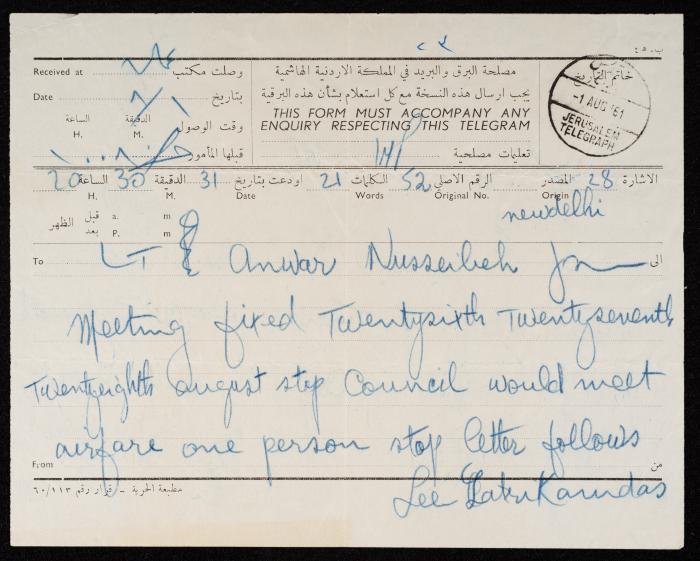 ب. ت ٤٥
Received at وصلت مكتب
Date بتاريخ ٨/١
الساعة الدقيقة وقت الوصول
H. M.
قبلها المأمور
مصلحة البرق والبريد في المملكة الاردنية الهاشمية
يجب ارسال هذه النسخة مع كل استعلام بشأن هذه البرقية
THIS FORM MUST ACCOMPANY ANY
ENQUIRY RESPECTING THIS TELEGRAM
تعليمات مصلحية
خاتم التاريخ
-1 AUG '61
JERUSALEM
TELEGRAPH
20 الساعة 30 الدقيقة 31 اودعت بتاريخ 21 الكلمات 52 الرقم الاصلي المصدر 28 الاشارة
H. M. Date Words Original No. Origin
newdelhi
الظهر قبل بعد a. m
P. m
To LT Anwar Nusseibeh الى
Meeting fixed Twentysixth Twentyseventh
Twentyeighth august stop Council would meet
airfare one person stop letter follows
From من
Lee
مطبعة الحرية - قرار رقم ٦٠/١١٣